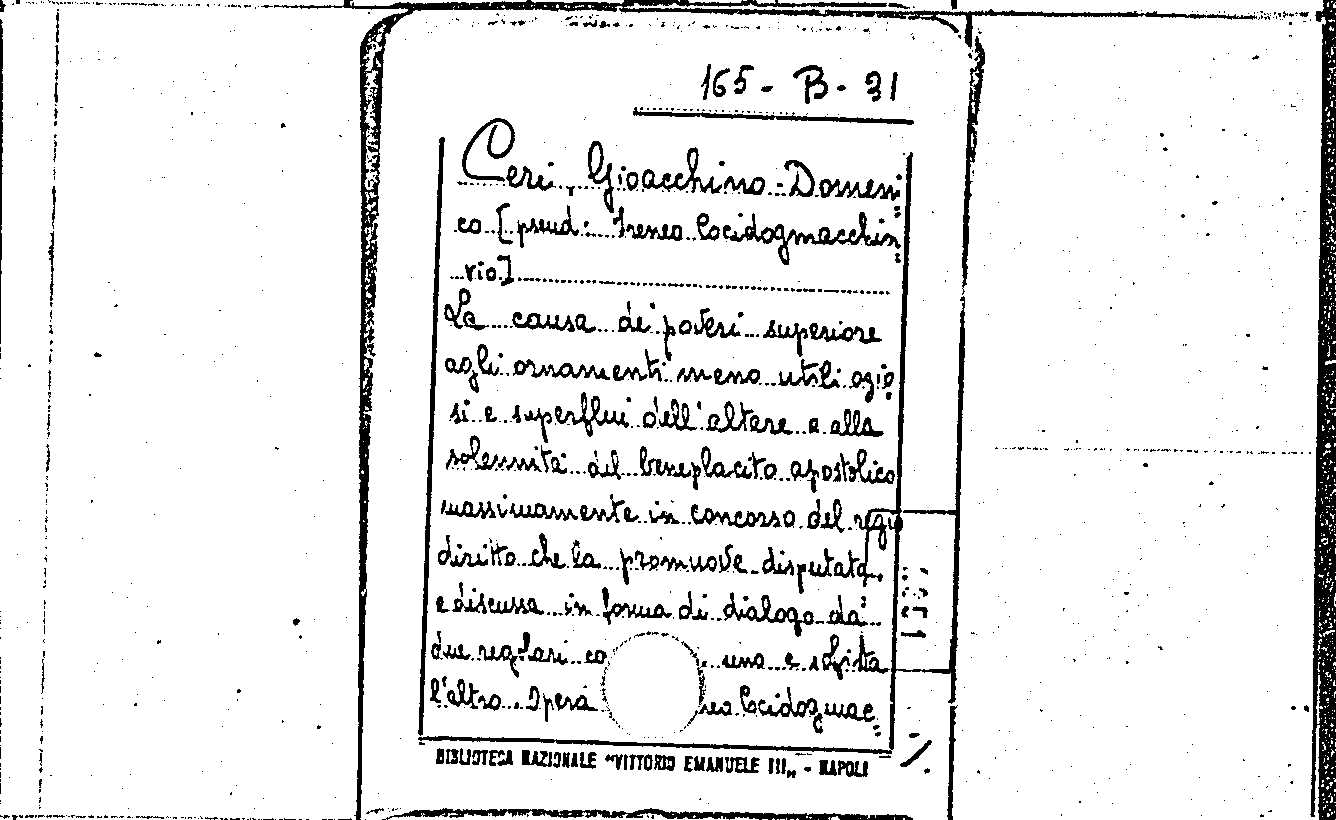 165 - B - 31
Ceri, Gioacchino-Domeni
co [pseud: Ireneo Cocidogmacchin
rio]
La causa de' poveri superiore
agli ornamenti meno utili ozio
si e superflui dell'altare e alla
solennità del beneplacito apostolico
massimamente in concorso del regio
diritto che la promuove disputata
e discussa in forma di dialogo da'
due regolari co uno e
l'altro. Opera Cocidogmac
BIBLIOTECA NAZIONALE "VITTORIO EMANUELE III„ - NAPOLI